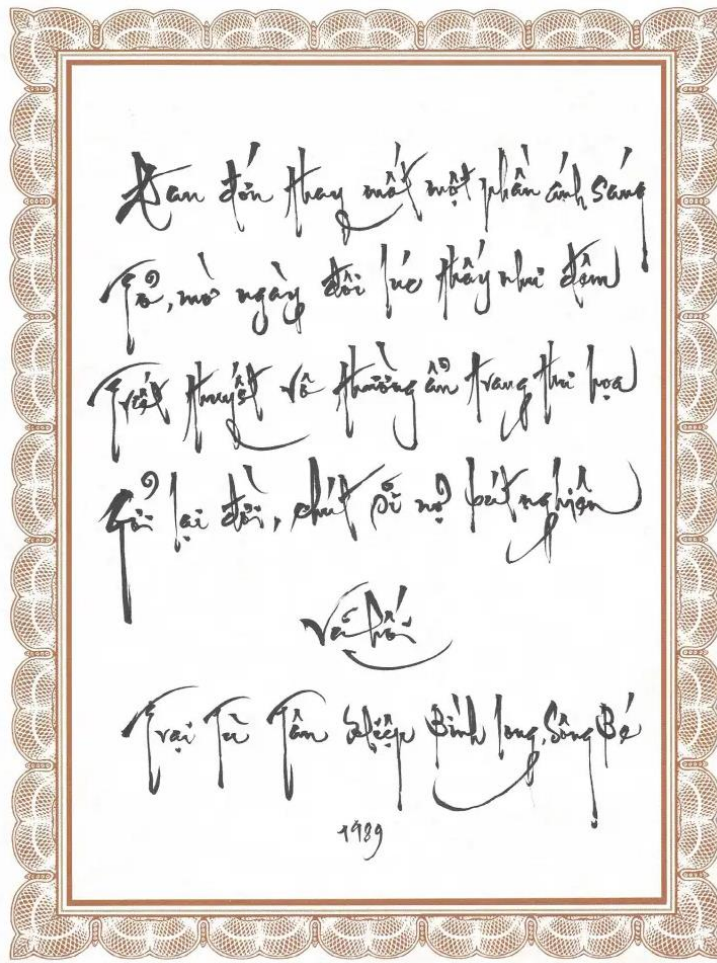 Đan đớn thay mất một phần ánh sáng
Tỏ, mờ ngày đôi lúc thấy như đêm
Triết thuyết vô thường ẩn trang thư họa
Gửi lại đời, chút nợ bút nghiên
Vũ Hối
Trại Tù Tân Hiệp Bình Long, Sông Bé
1989